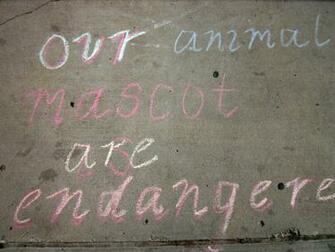 our animal
mascot
are
endangere